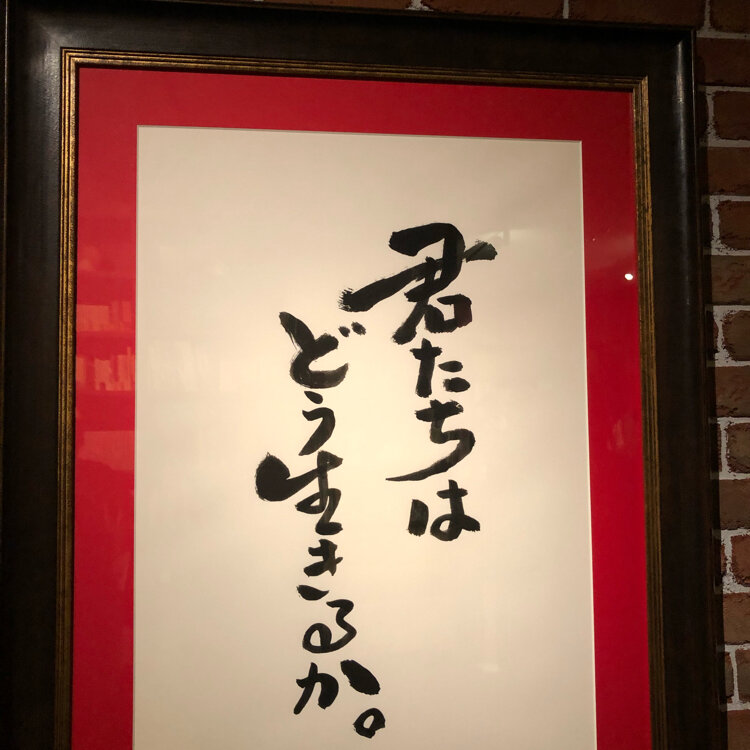 君たちは
どう生きるか。